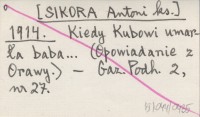 [SIKORA Antoni ks.]
1914. Kiedy Kubowi umar-
ła baba... (Opowiadanie z
Orawy.) – Gaz. Podh. 2,
nr 27.